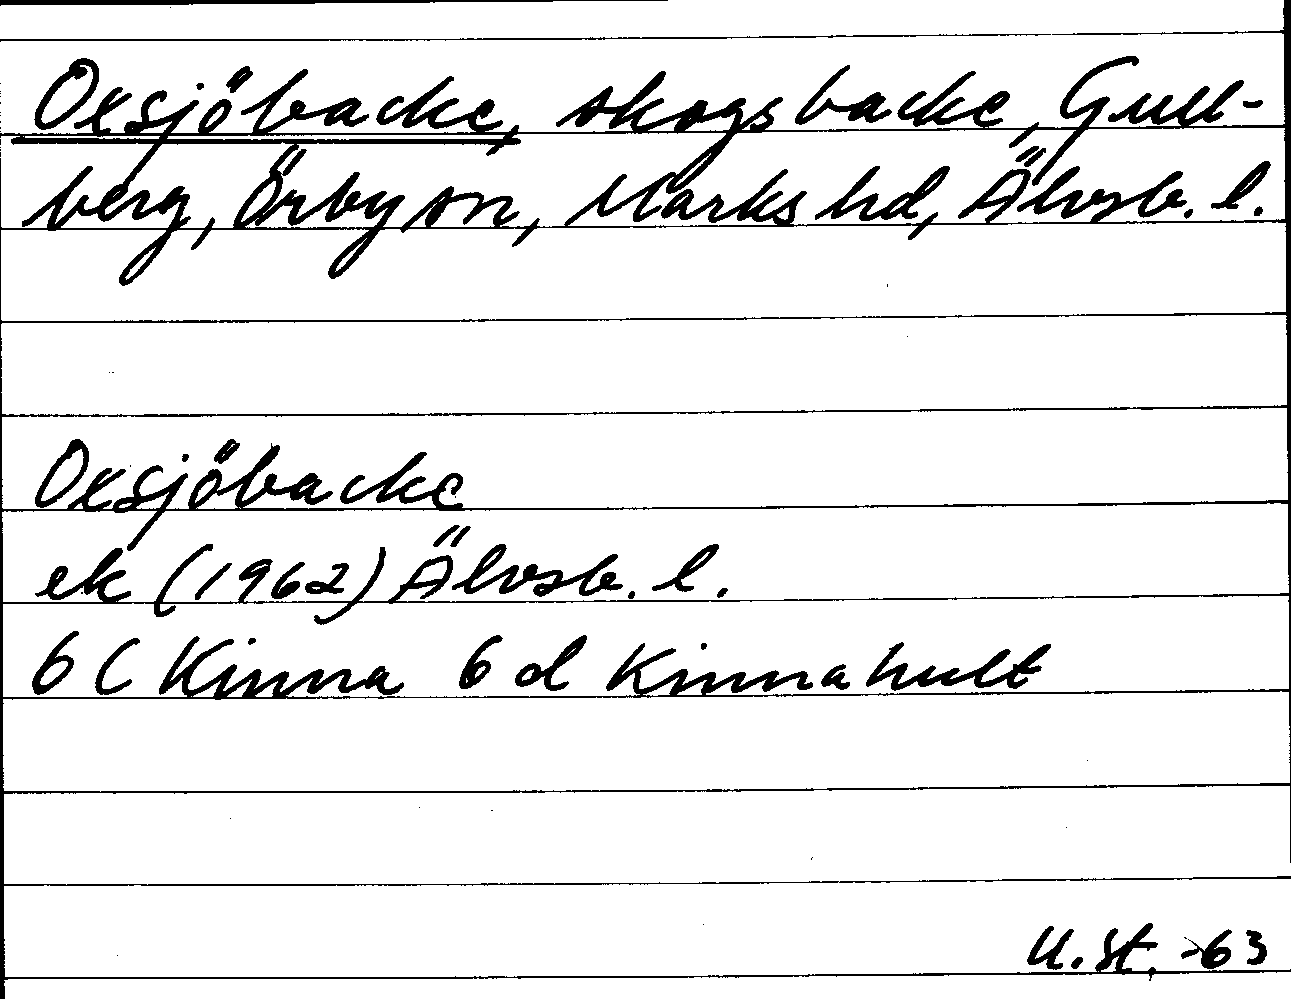 Oxsjöbacke, skogsbacke, Gull-
berg, Örby sn, Marks hd, Älvsb. l.
Oxsjöbacke
ek (1962) Älvsb. l.
6 C Kinna 6 d Kinnahult
U. St. -63